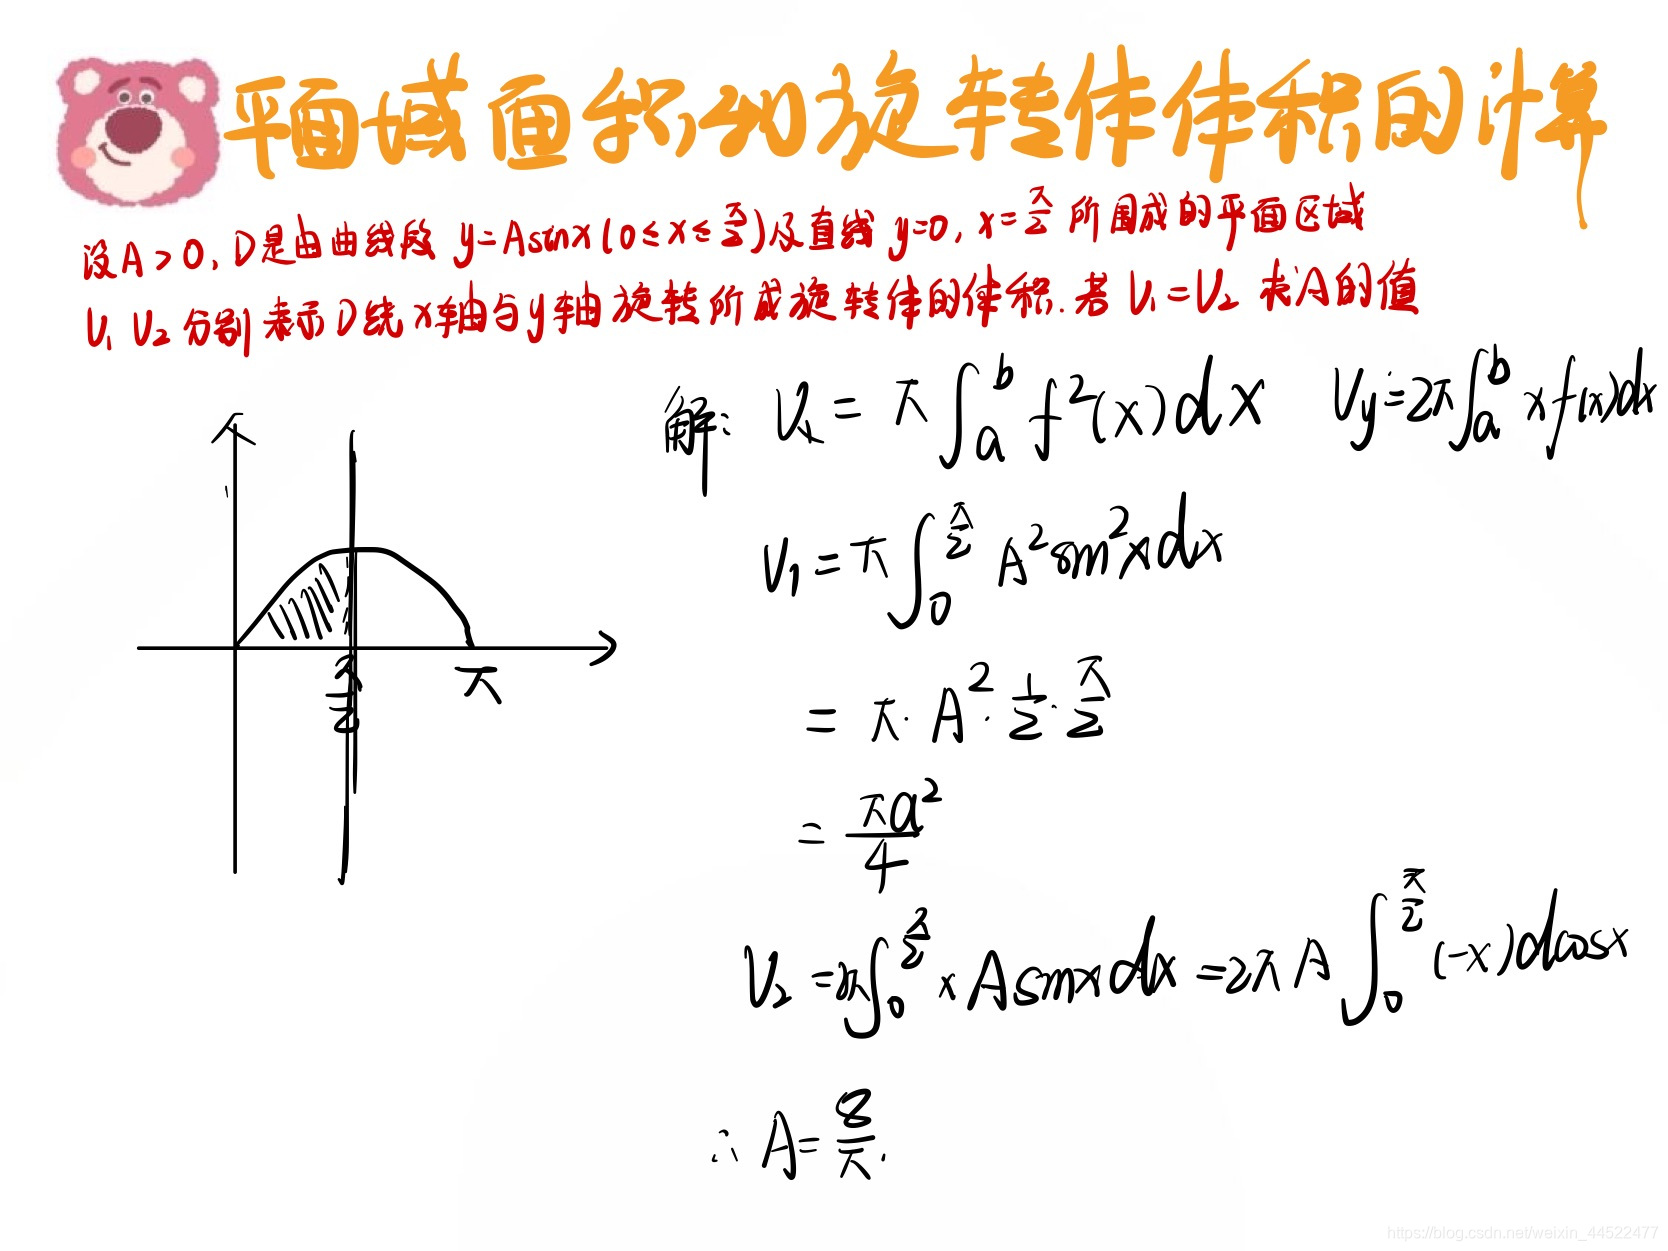 平面域面积和旋转体体积的计算
设A>0, D是由曲线段 y=Asinx(0≤x≤π/2)及直线 y=0, x=π/2 所围成的平面区域
V₁ V₂ 分别表示D绕x轴与y轴旋转所成旋转体的体积.若 V₁=V₂ 求A的值
解: Vₓ = π∫ₐᵇ f²(x)dx Vy=2π∫ₐᵇ xf(x)dx
V₁ = π∫₀^(π/2) A²sin²xdx
= π·A²·1/2·π/2
= πa²/4
V₂ =2π∫₀^(π/2) xAsinxdx =2πA∫₀^(π/2) (-x)dcosx
∴ A=8/π.
π/2
π
https://blog.csdn.net/weixin_44522477